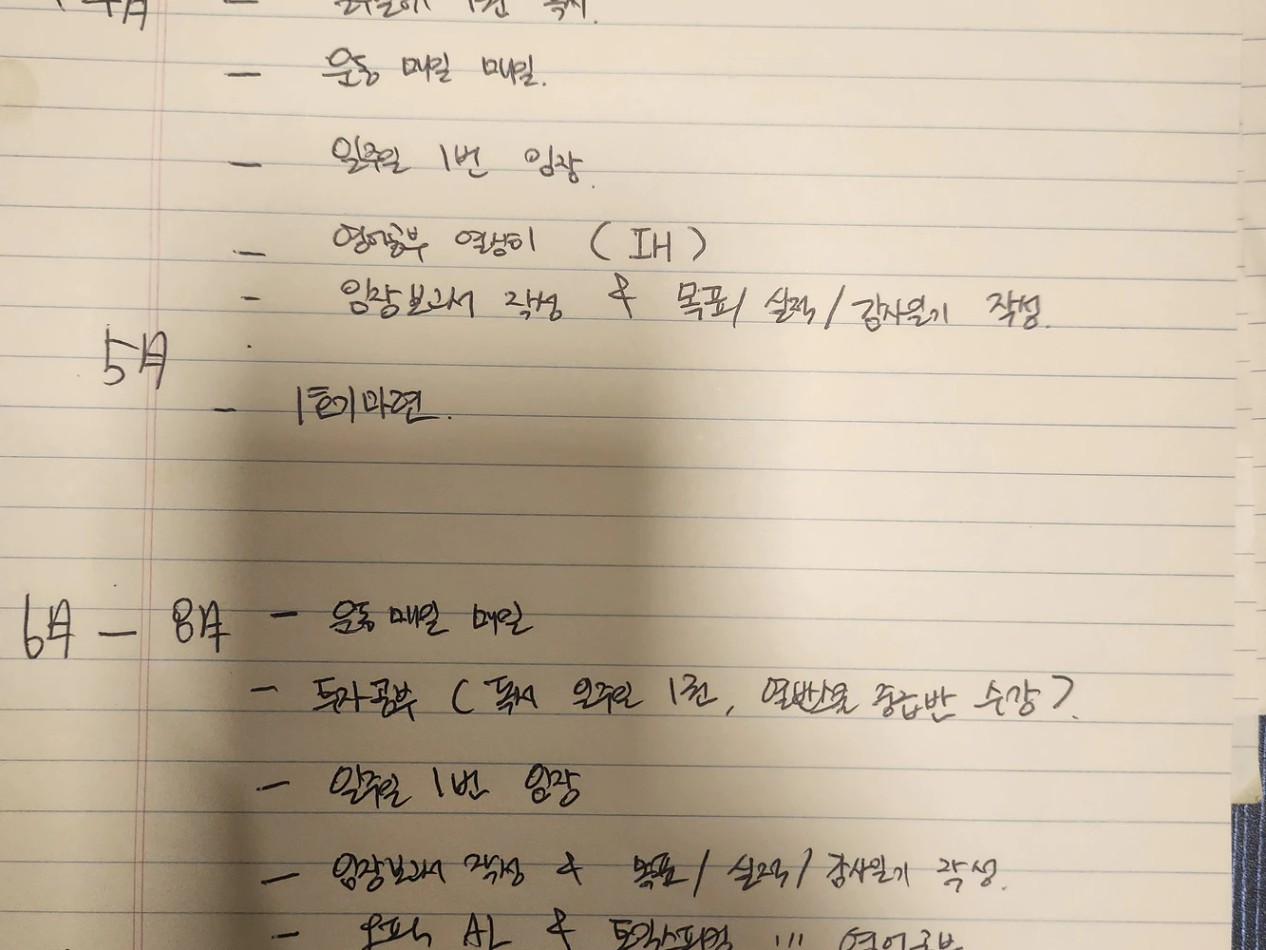 - 일주일에 1권 독서.
- 운동 매일 매일.
- 일주일 1번 임장.
- 영어공부 열심히 (IH)
- 임장보고서 작성 & 목표/실적/감사일기 작성.
5월
- 1호기마련.
6월 - 8월 - 운동 매일 매일
- 투자공부 (독서 일주일 1권, 열반 중급반 수강).
- 일주일 1번 임장
- 임장보고서 작성 & 목표/실적/감사일기 작성.
- 오픽 AL & 토익스피킹 !!! 영어공부